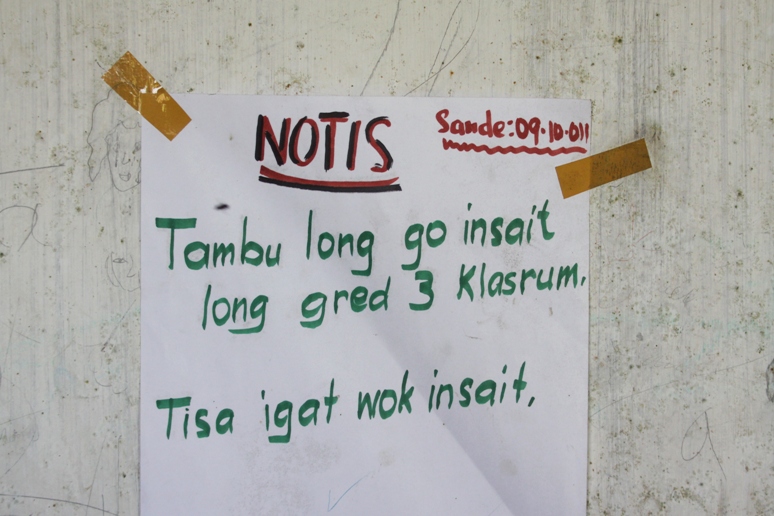 NOTIS
Sande:09.10.011
Tambu long go insait
long gred 3 Klasrum.
Tisa igat wok insait,